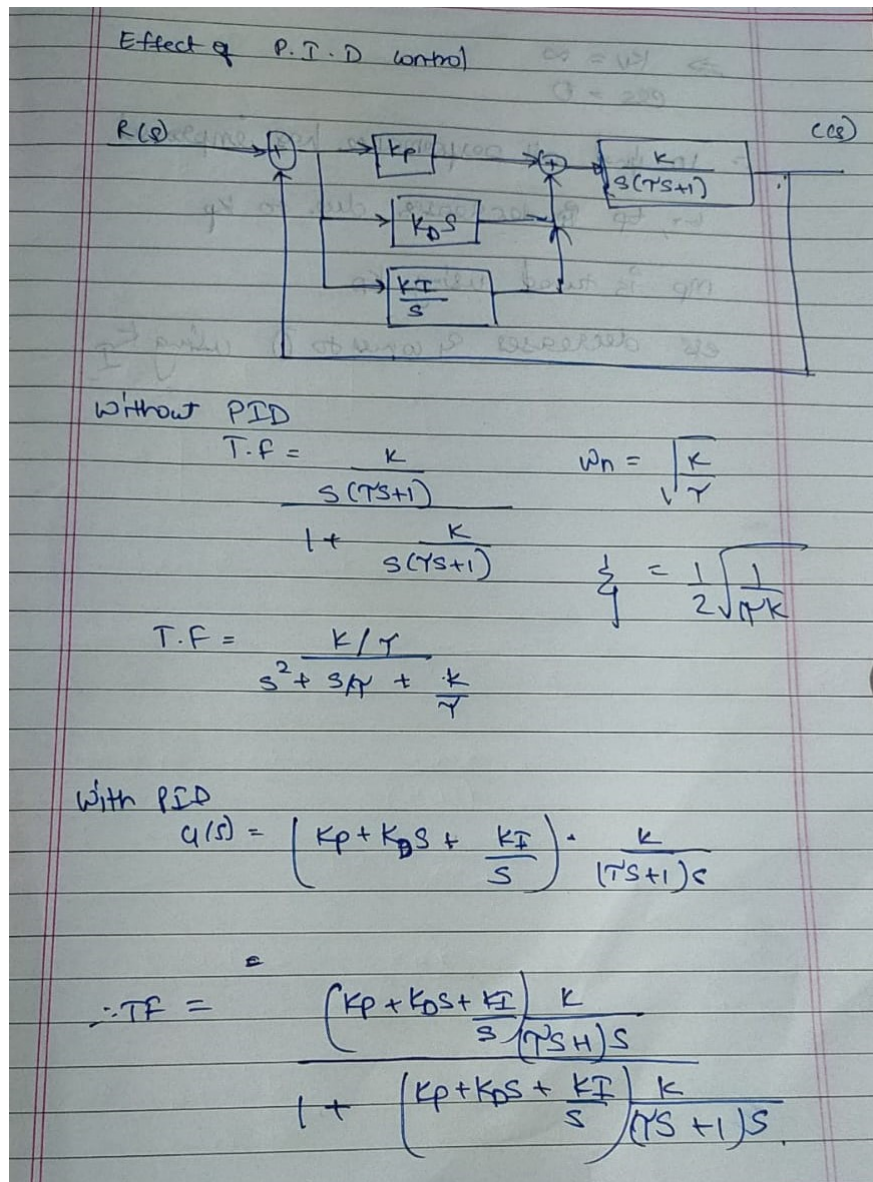 Effect of P.I.D control
R(s) + Kp + K/S(τS+1) C(s)
KDS
KI/S
Without PID
T.F = (K/S(τS+1))/(1 + K/S(τS+1))
ωn = √(K/τ)
ξ = 1/2 √(1/τK)
T.F = (K/τ)/(s² + S/τ + K/τ)
With PID
G(s) = (Kp + KDS + KI/S) · K/(τS+1)S
=
∴ TF = ((Kp + KDS + KI/S) K/(τS+1)S)/(1 + (Kp + KDS + KI/S) K/(τS+1)S)